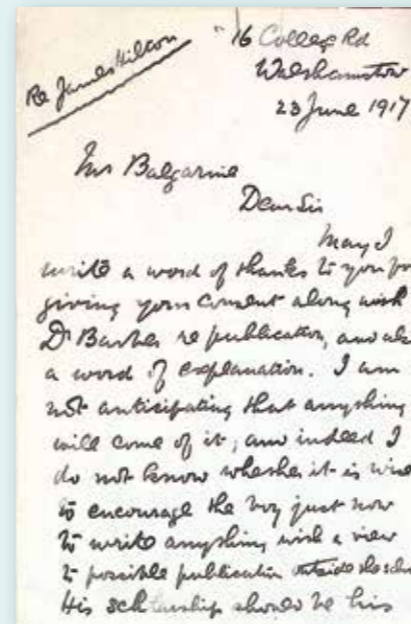 Re James Hilton
16 College Rd
Walthamstow
23 June 1917
Mr Balgarnie
Dear Sir
May I
write a word of thanks to you for
giving your consent along with
Dr Barber re publication, and also
a word of explanation. I am
not anticipating that anything
will come of it, and indeed I
do not know whether it is wise
to encourage the boy just now
to write anything with a view
to possible publication outside the
His scholarship should be his